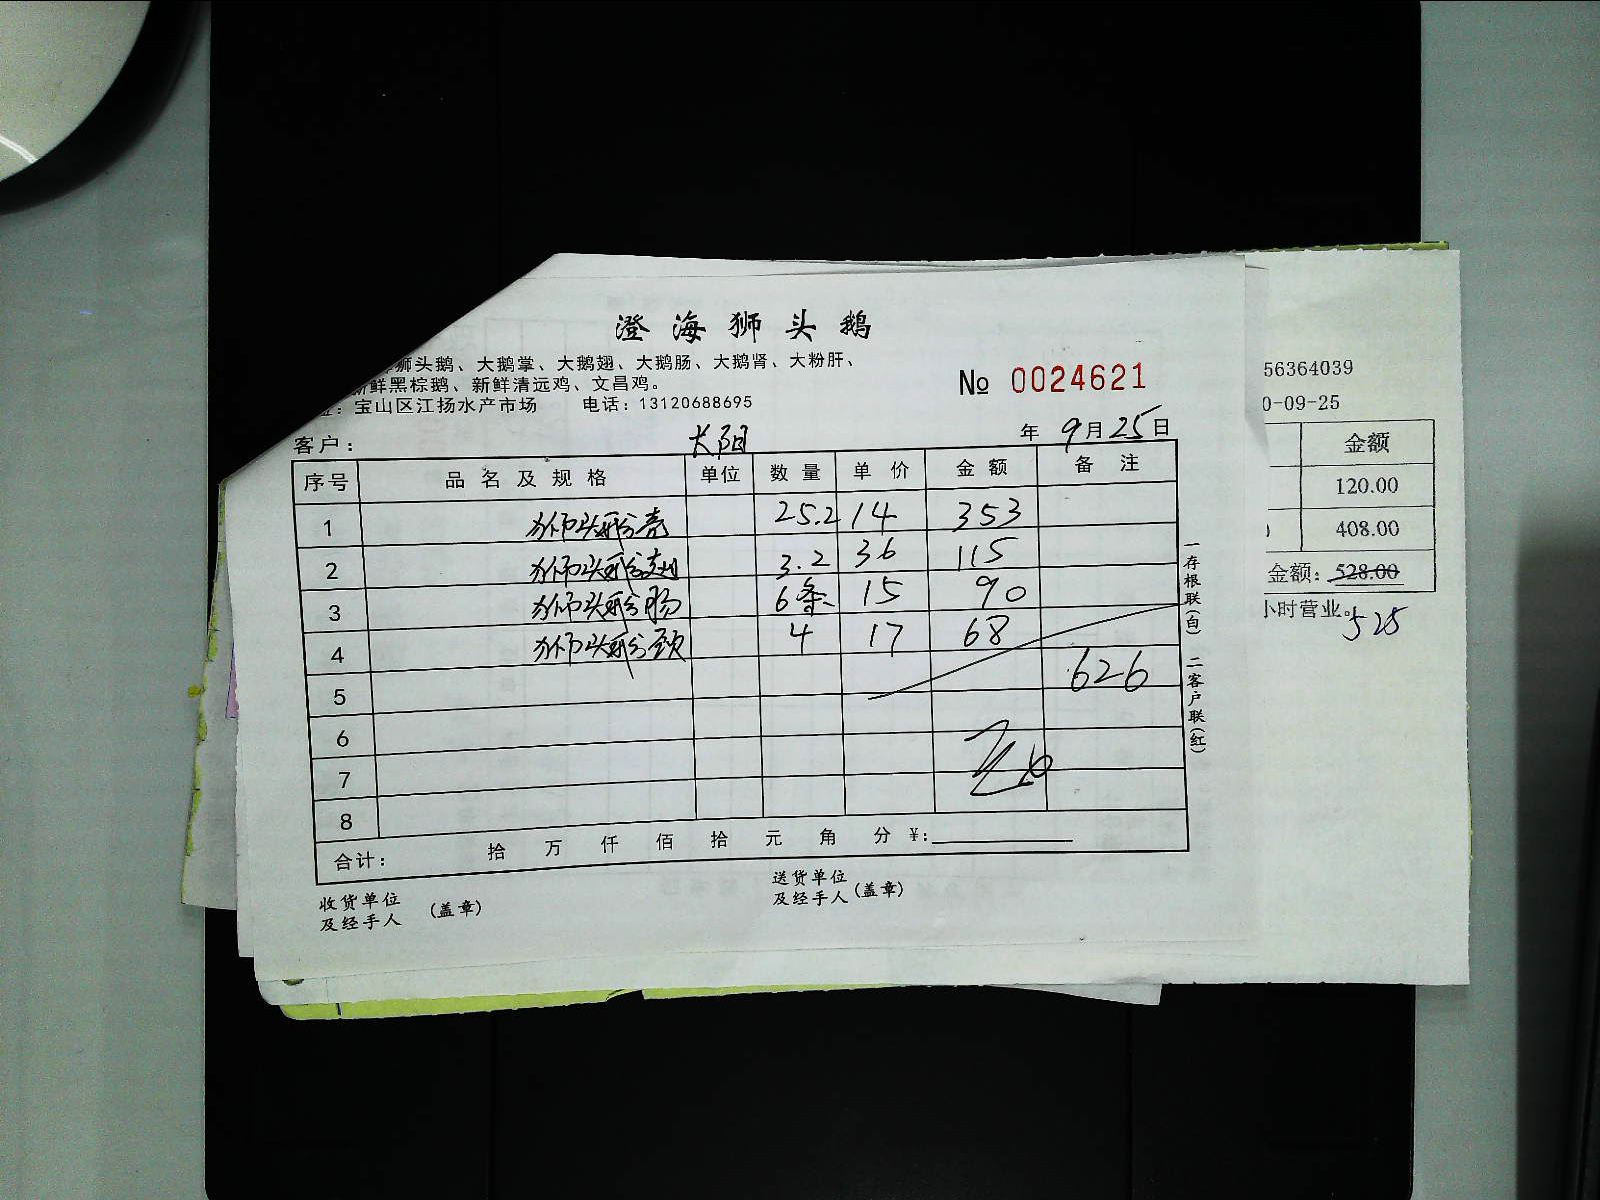 澄海狮头鹅
狮头鹅、大鹅掌、大鹅翅、大鹅肠、大鹅肾、大粉肝、
新鲜黑棕鹅、新鲜清远鸡、文昌鸡。
宝山区江扬水产市场 电话：13120688695
№ 0024621
客户： 长阳 年 9月25日
序号 品名及规格 单位 数量 单价 金额 备注
1 狮头鹅壳 25.2 14 353
2 狮头鹅翅 3.2 36 115
3 狮头鹅肠 6条 15 90
4 狮头鹅颈 4 17 68
5 626
6
7
8
合计： 拾 万 仟 佰 拾 元 角 分 ¥:
收货单位
及经手人 (盖章)
送货单位
及经手人 (盖章)
一存根联(白) 二客户联(红)
56364039
0-09-25
金额
120.00
408.00
金额: 528.00
小时营业。
525